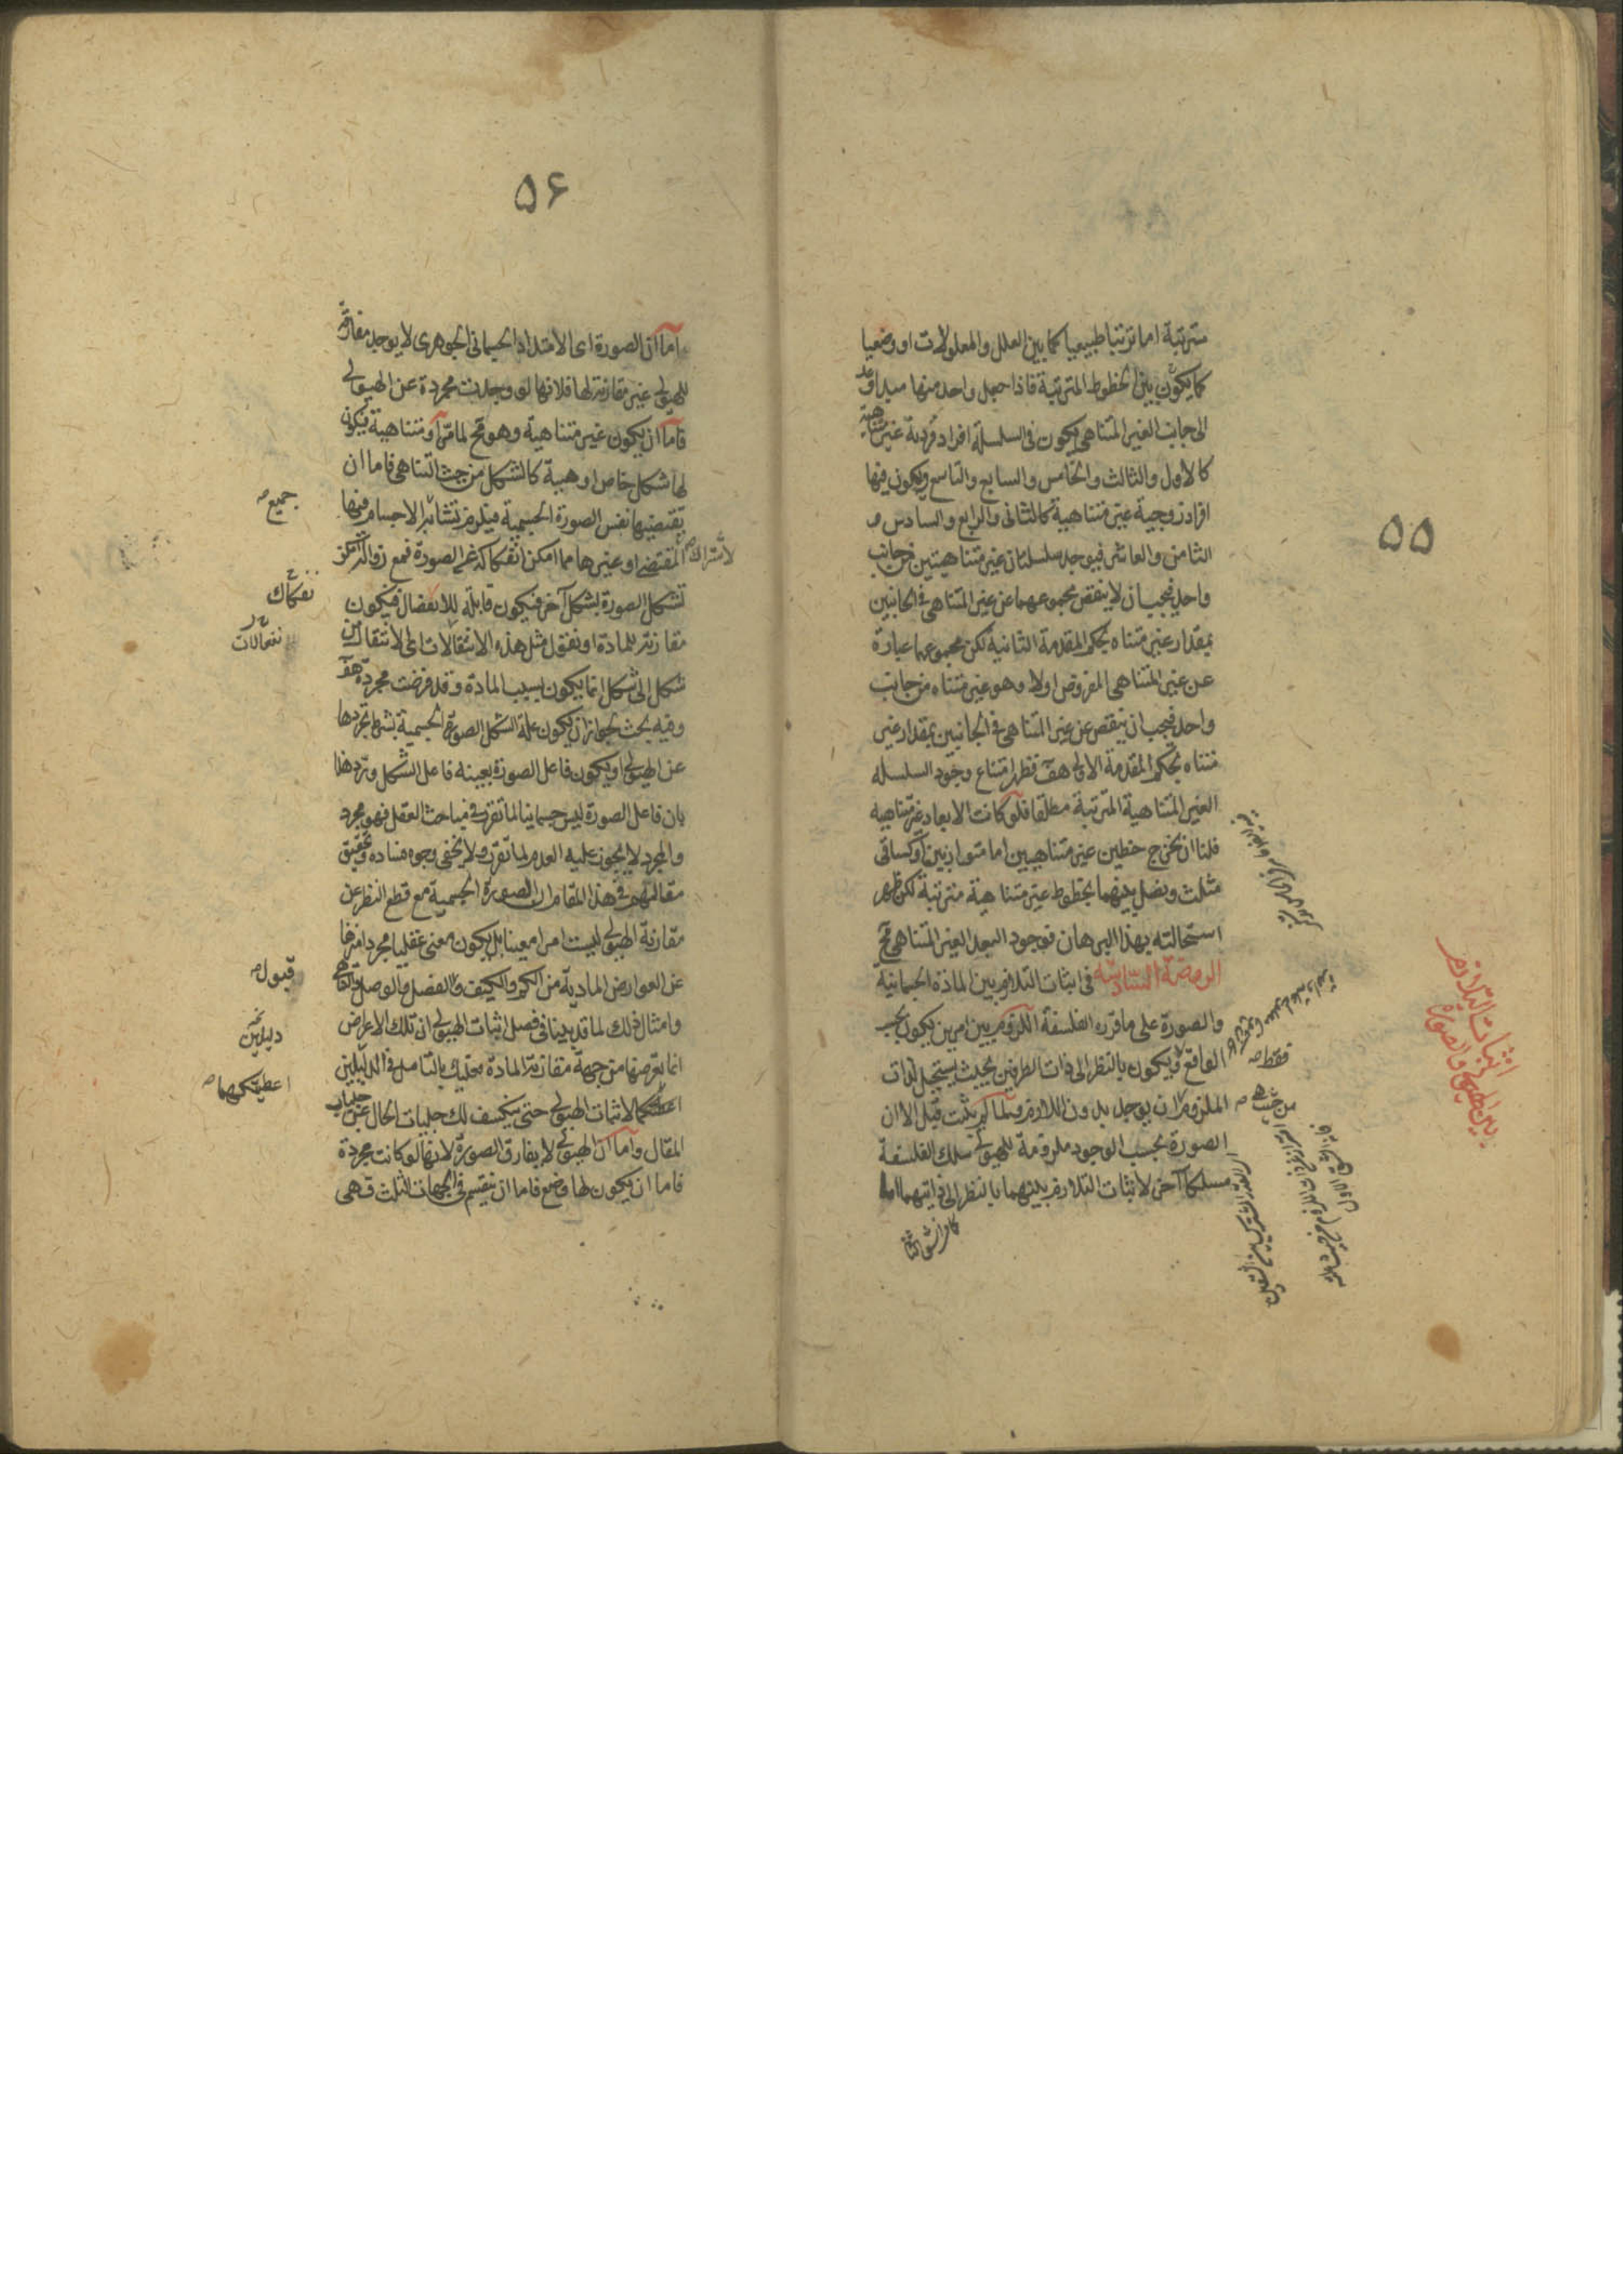 ۵۵
مترتبة اما ترتبا طبيعيا كما بين العلل والمعلولات او وضعيا
كما يكون بين الخطوط المترتبة فاذا جعل واحد منها مبدا وعد
الى جانب الغير المتناهى يكون فى السلسلة افراد فردية غير متناهية
كالاول والثالث والخامس والسابع والتاسع ويكون فيها
افراد زوجية غير متناهية كالثانى والرابع والسادس و
الثامن والعاشر فيوجد سلسلتان غير متناهيتين من جانب
واحد فيجب ان لا ينقص مجموعهما عن غير المتناهى فى الجانبين
بمقدار غير متناه بحكم المقدمة الثانية لكن مجموعهما عبارة
عن غير المتناهى المفروض اولا وهو غير متناه من جانب
واحد فيجب ان ينقص عن غير المتناهى فى الجانبين بمقدار غير
متناه بحكم المقدمة الاولى هف فظهر امتناع وجود السلسلة
الغير المتناهية المترتبة مطلقا فلو كانت الابعاد غير متناهية
فلنا ان نخرج خطين غير متناهيين اما متوازيين او كساقى
مثلث ونصل بينهما بخطوط غير متناهية مترتبة لكن ظهر
استحالته بهذا البرهان فوجود البعد الغير المتناهى مح
الروضة السادسة فى اثبات التلازم بين المادة الجسمانية
والصورة على ما قرره الفلسفة اللزوم بين امرين يكون بحسب
الواقع ويكون بالنظر الى ذات الطرفين بحيث يستحيل لذات
الملزوم ان يوجد بدون اللازم ولما لم يثبت قبل الا ان
الصورة بحسب الوجود ملزومة للهيولى سلك الفلسفة
مسلكا آخر لاثبات التلازم بينهما بالنظر الى ذاتيهما اما
فقط صح
اثبات التلازم
بين الهيولى والصورة
۵۶
اما ان الصورة اى الامتداد الجسمانى الجوهرى لا يوجد مفارقة
للهيولى غير مقارنة لها فلانها لو وجدت مجردة عن الهيولى
فاما ان يكون غير متناهية وهو مح لما مر او متناهية فيكون
لها شكل خاص او هيئة كالشكل من حيث التناهى فاما ان
يقتضيها نفس الصورة الجسمية فيلزم تشابه الاجسام فيها
لاشتراك المقتضى او غيرها مما امكن انفكاكه عن الصورة فمع زواله امكن
تشكل الصورة بشكل آخر فيكون قابلة للانفصال فيكون
مقارنة للمادة او نقول مثل هذه الانتقالات اى الانتقال من
شكل الى شكل انما يكون بسبب المادة وقد فرضت مجردة هف
وفيه بحث لجواز ان يكون علة الشكل الصورة الجسمية بشرط تجردها
عن الهيولى او يكون فاعل الصورة بعينه فاعل الشكل ويرد هذا
بان فاعل الصورة ليس جسمانيا لما تقرر فى مباحث العقل فهو مجرد
والمجرد لا يجوز عليه العدم لما تقرر ولا يخفى وجوه فساده وتحقيق
مقالتهم فى هذا المقام ان الصورة الجسمية مع قطع النظر عن
مقارنة الهيولى ليست امرا معينا بل يكون معنى عقليا مجردا منزها
عن العوارض المادية من الكم والكيف والفصل والوصل والتناهى
وامثال ذلك لما قد بينا فى فصل اثبات الهيولى ان تلك الاعراض
انما يعرضها من جهة مقارنة المادة فعليك بالتامل فى الدليلين
لاثبات الهيولى حتى ينكشف لك جليات الحال عن جلباب
المقال واما ان الهيولى لا يفارق الصورة لانها لو كانت مجردة
فاما ان يكون لها وضع فاما ان ينقسم فى الجهات الثلث فهى
جميع صح
نفكاك
نفعالات
قبول صح
دليلين
اعطيتكهما صح